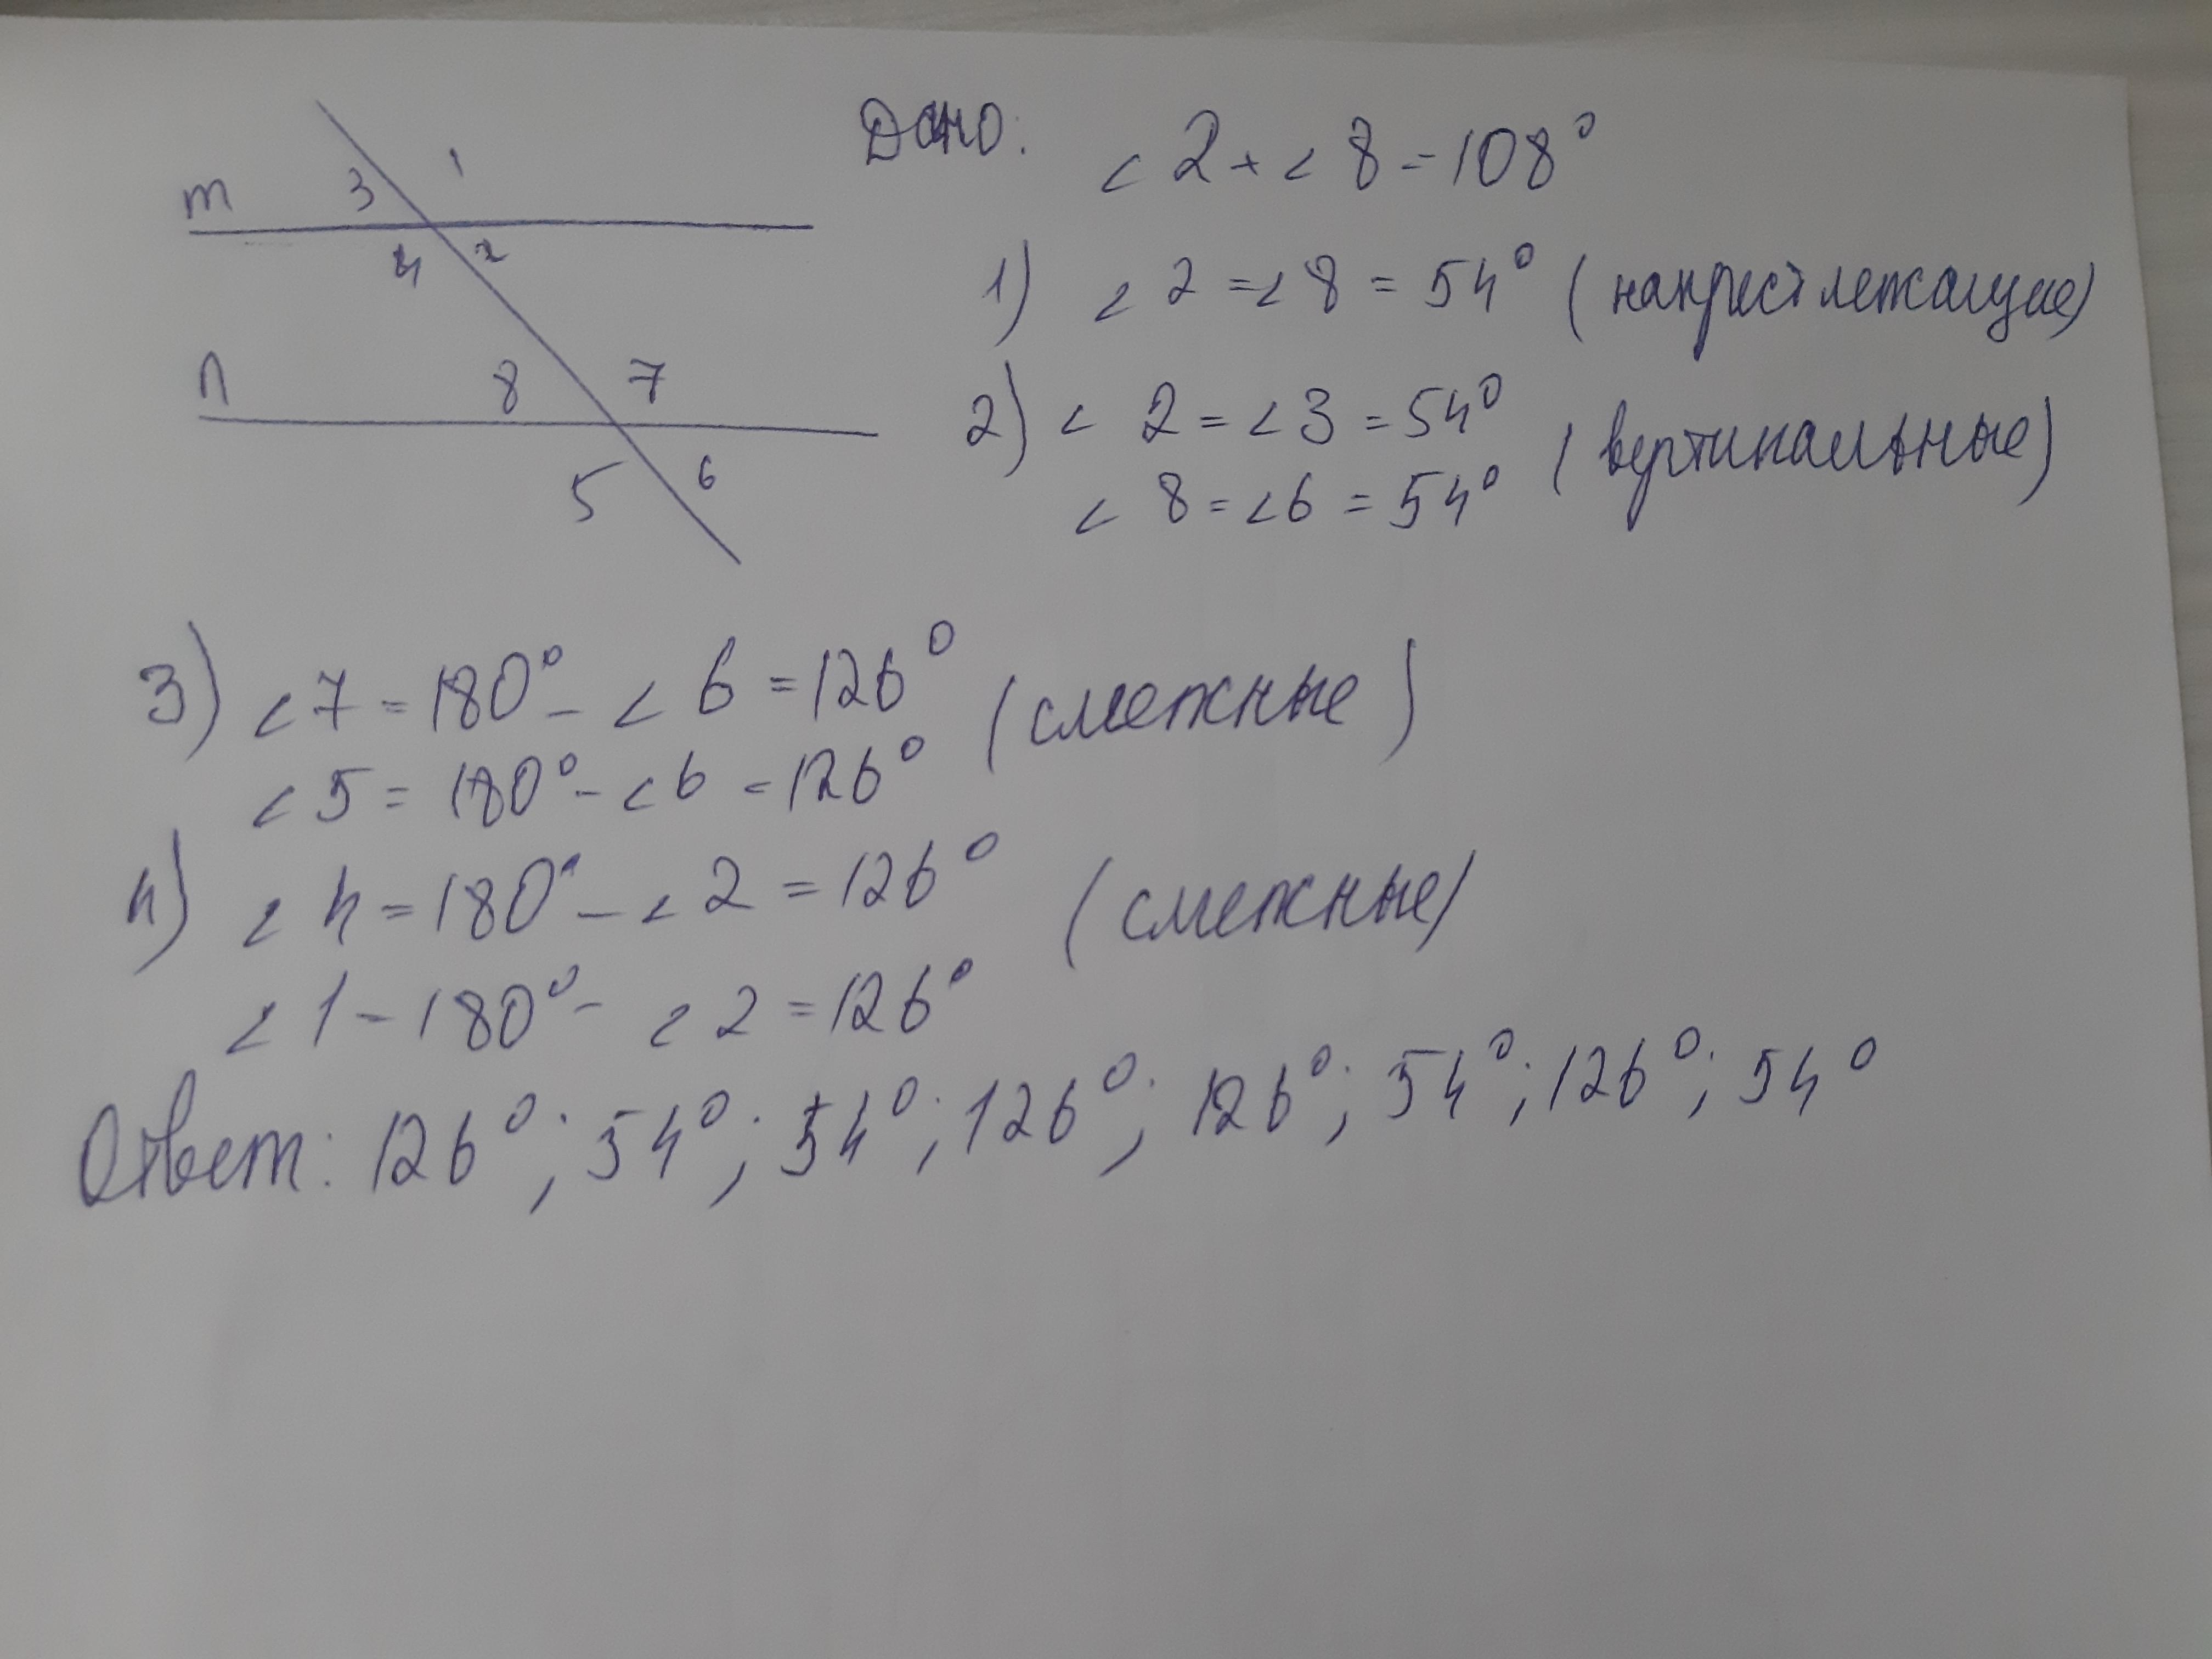 Дано: < 2 + < 8 = 108°
3 1
m
4 2
1) < 2 = < 8 = 54° (накрестлежащие)
n 8 7
2) < 2 = < 3 = 54°
< 8 = < 6 = 54° (вертикальные)
5 6
3) < 7 = 180° - < 6 = 126° (смежные)
< 5 = 180° - < 6 = 126°
4) < 4 = 180° - < 2 = 126° (смежные)
< 1 - 180° - < 2 = 126°
Ответ: 126°; 54°; 54°; 126°; 126°; 54°; 126°; 54°